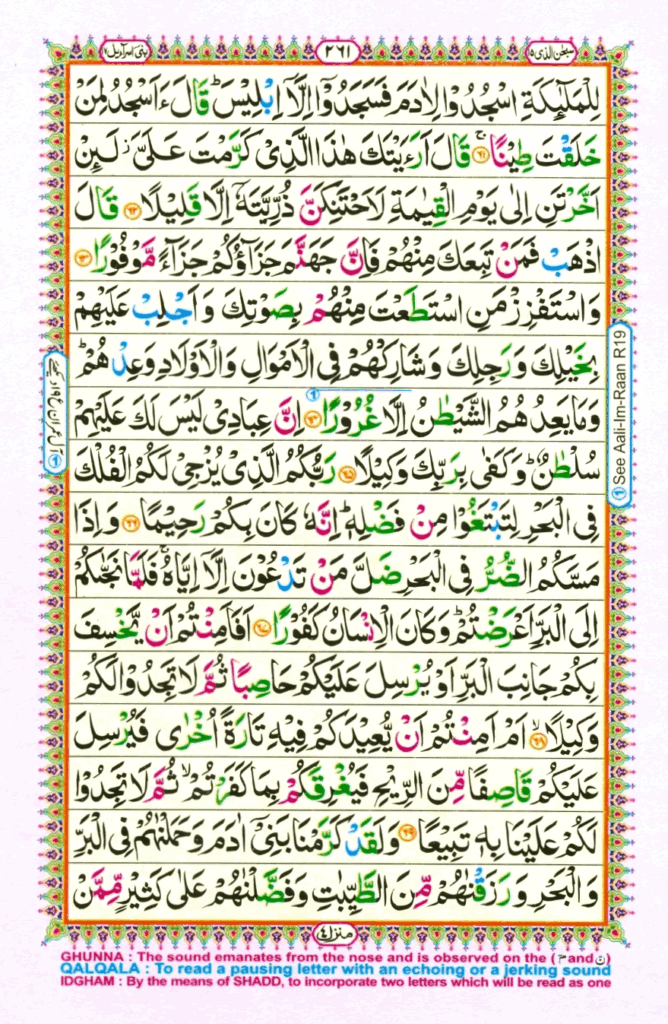 بنی اسرآءیل ١٧
٢٦١
سبحن الذی ١٥
لِلْمَلٰٓئِكَةِ اسْجُدُوْا لِاٰدَمَ فَسَجَدُوْۤا اِلَّاۤ اِبْلِيْسَ ؕ قَالَ ءَاَسْجُدُ لِمَنْ
خَلَقْتَ طِيْنًا ۚ﴿٦١﴾ قَالَ اَرَءَيْتَكَ هٰذَا الَّذِىْ كَرَّمْتَ عَلَىَّ ز لَئِنْ
اَخَّرْتَنِ اِلٰى يَوْمِ الْقِيٰمَةِ لَاَحْتَنِكَنَّ ذُرِّيَّتَهٗۤ اِلَّا قَلِيْلًا ﴿٦٢﴾ قَالَ
اذْهَبْ فَمَنْ تَبِعَكَ مِنْهُمْ فَاِنَّ جَهَنَّمَ جَزَآؤُكُمْ جَزَآءً مَّوْفُوْرًا ﴿٦٣﴾
وَاسْتَفْزِزْ مَنِ اسْتَطَعْتَ مِنْهُمْ بِصَوْتِكَ وَاَجْلِبْ عَلَيْهِمْ
بِخَيْلِكَ وَرَجِلِكَ وَشَارِكْهُمْ فِى الْاَمْوَالِ وَالْاَوْلَادِ وَعِدْهُمْ ؕ
وَمَا يَعِدُهُمُ الشَّيْطٰنُ اِلَّا غُرُوْرًا ﴿٦٤﴾ اِنَّ عِبَادِىْ لَيْسَ لَكَ عَلَيْهِمْ
سُلْطٰنٌ ؕ وَكَفٰى بِرَبِّكَ وَكِيْلًا ﴿٦٥﴾ رَبُّكُمُ الَّذِىْ يُزْجِىْ لَكُمُ الْفُلْكَ
فِى الْبَحْرِ لِتَبْتَغُوْا مِنْ فَضْلِهٖ ؕ اِنَّهٗ كَانَ بِكُمْ رَحِيْمًا ﴿٦٦﴾ وَاِذَا
مَسَّكُمُ الضُّرُّ فِى الْبَحْرِ ضَلَّ مَنْ تَدْعُوْنَ اِلَّاۤ اِيَّاهُ ۚ فَلَمَّا نَجّٰٮكُمْ
اِلَى الْبَرِّ اَعْرَضْتُمْ ؕ وَكَانَ الْاِنْسَانُ كَفُوْرًا ﴿٦٧﴾ اَفَاَمِنْتُمْ اَنْ يَّخْسِفَ
بِكُمْ جَانِبَ الْبَرِّ اَوْ يُرْسِلَ عَلَيْكُمْ حَاصِبًا ثُمَّ لَا تَجِدُوْا لَكُمْ
وَكِيْلًا ۙ﴿٦٨﴾ اَمْ اَمِنْتُمْ اَنْ يُّعِيْدَكُمْ فِيْهِ تَارَةً اُخْرٰى فَيُرْسِلَ
عَلَيْكُمْ قَاصِفًا مِّنَ الرِّيْحِ فَيُغْرِقَكُمْ بِمَا كَفَرْتُمْ ۙ ثُمَّ لَا تَجِدُوْا
لَكُمْ عَلَيْنَا بِهٖ تَبِيْعًا ﴿٦٩﴾ وَلَقَدْ كَرَّمْنَا بَنِىْۤ اٰدَمَ وَحَمَلْنٰهُمْ فِى الْبَرِّ
وَالْبَحْرِ وَرَزَقْنٰهُمْ مِّنَ الطَّيِّبٰتِ وَفَضَّلْنٰهُمْ عَلٰى كَثِيْرٍ مِّمَّنْ
See Aali-Im-Raan R19
منزل ٤
GHUNNA : The sound emanates from the nose and is observed on the (م and ن)
QALQALA : To read a pausing letter with an echoing or a jerking sound
IDGHAM : By the means of SHADD, to incorporate two letters which will be read as one